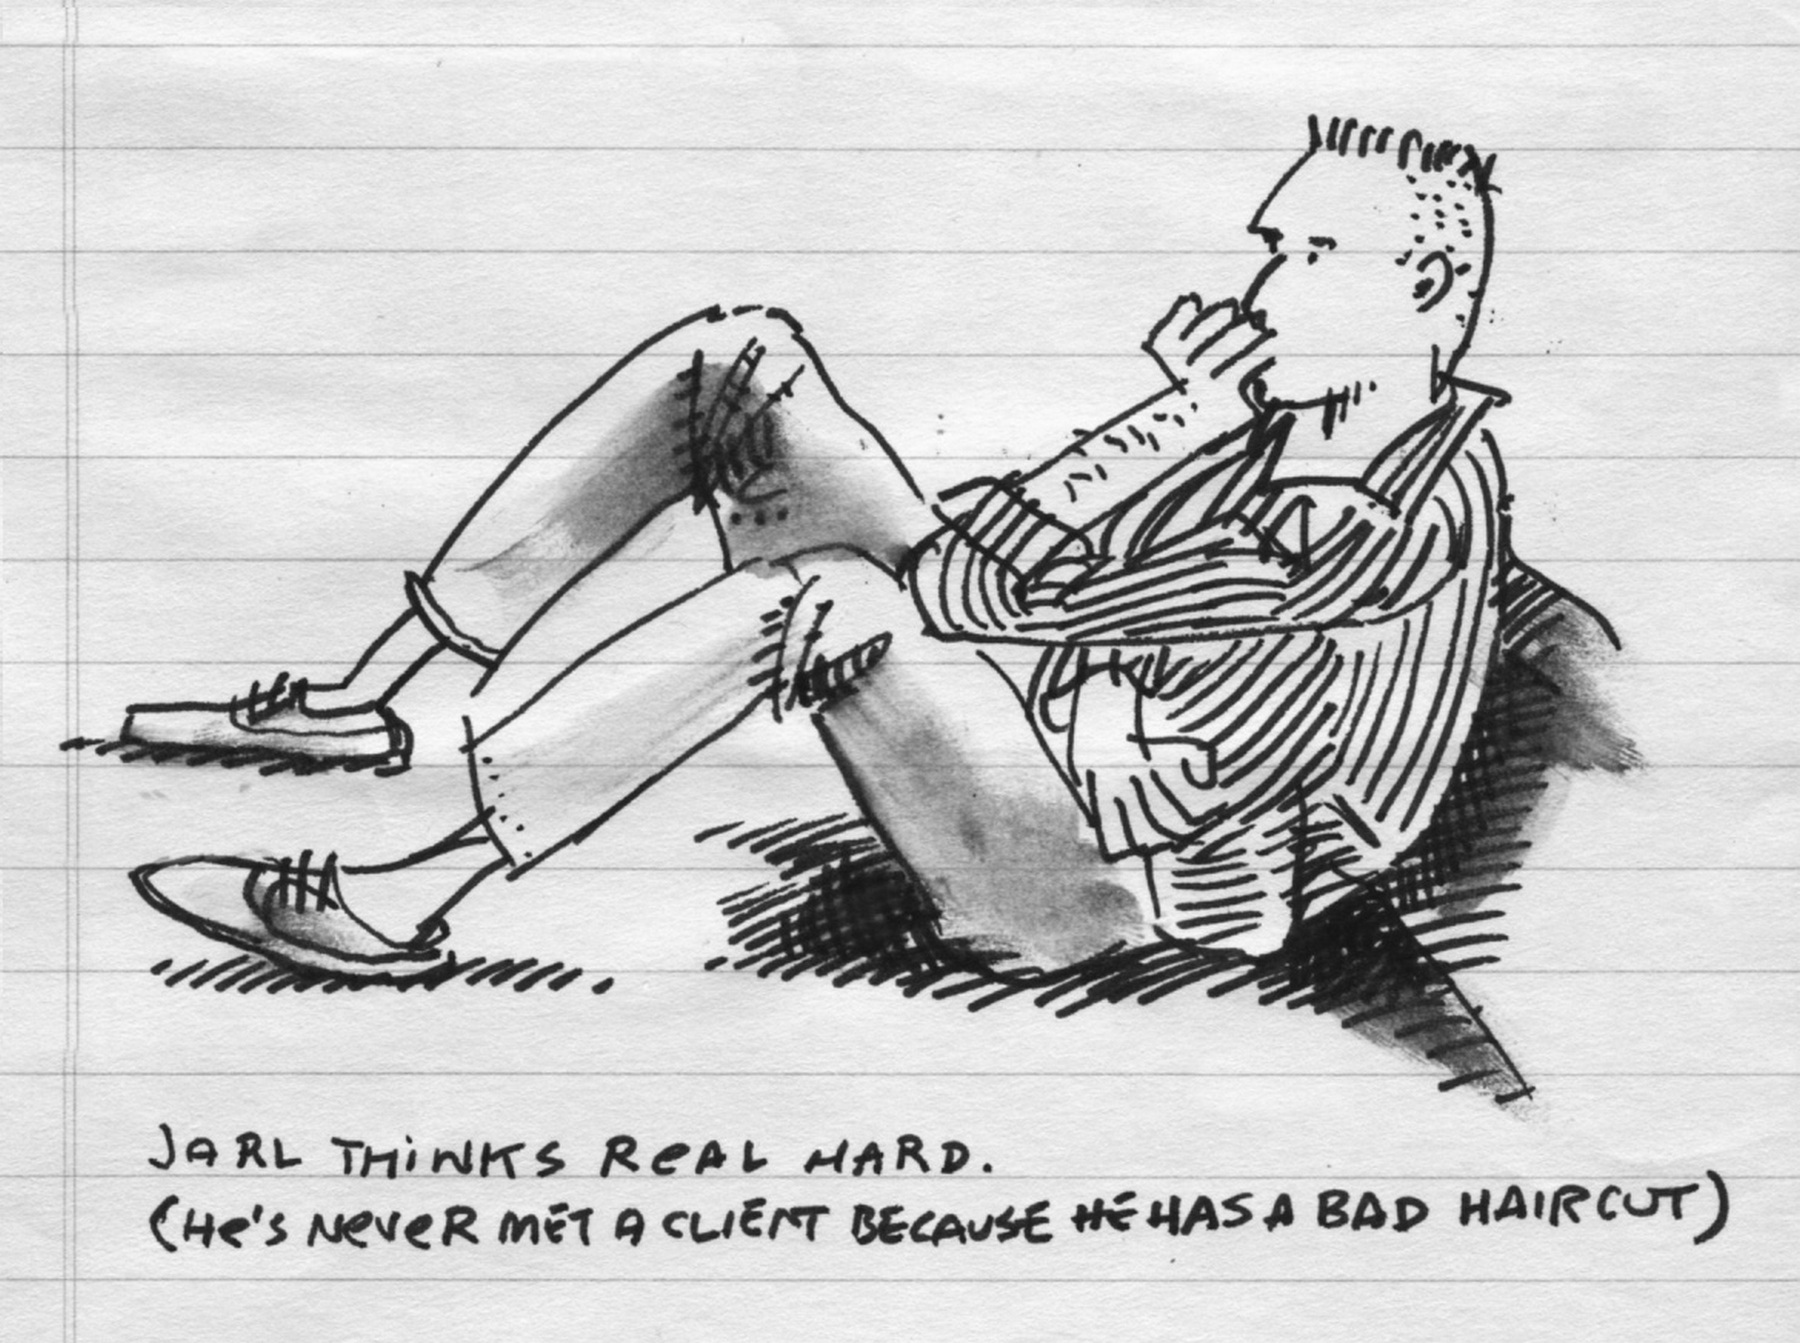 JARL THINKS REAL HARD.
(He's NeveR MET A CLIENT BECAUSE HE HAS A BAD HAIRCUT)